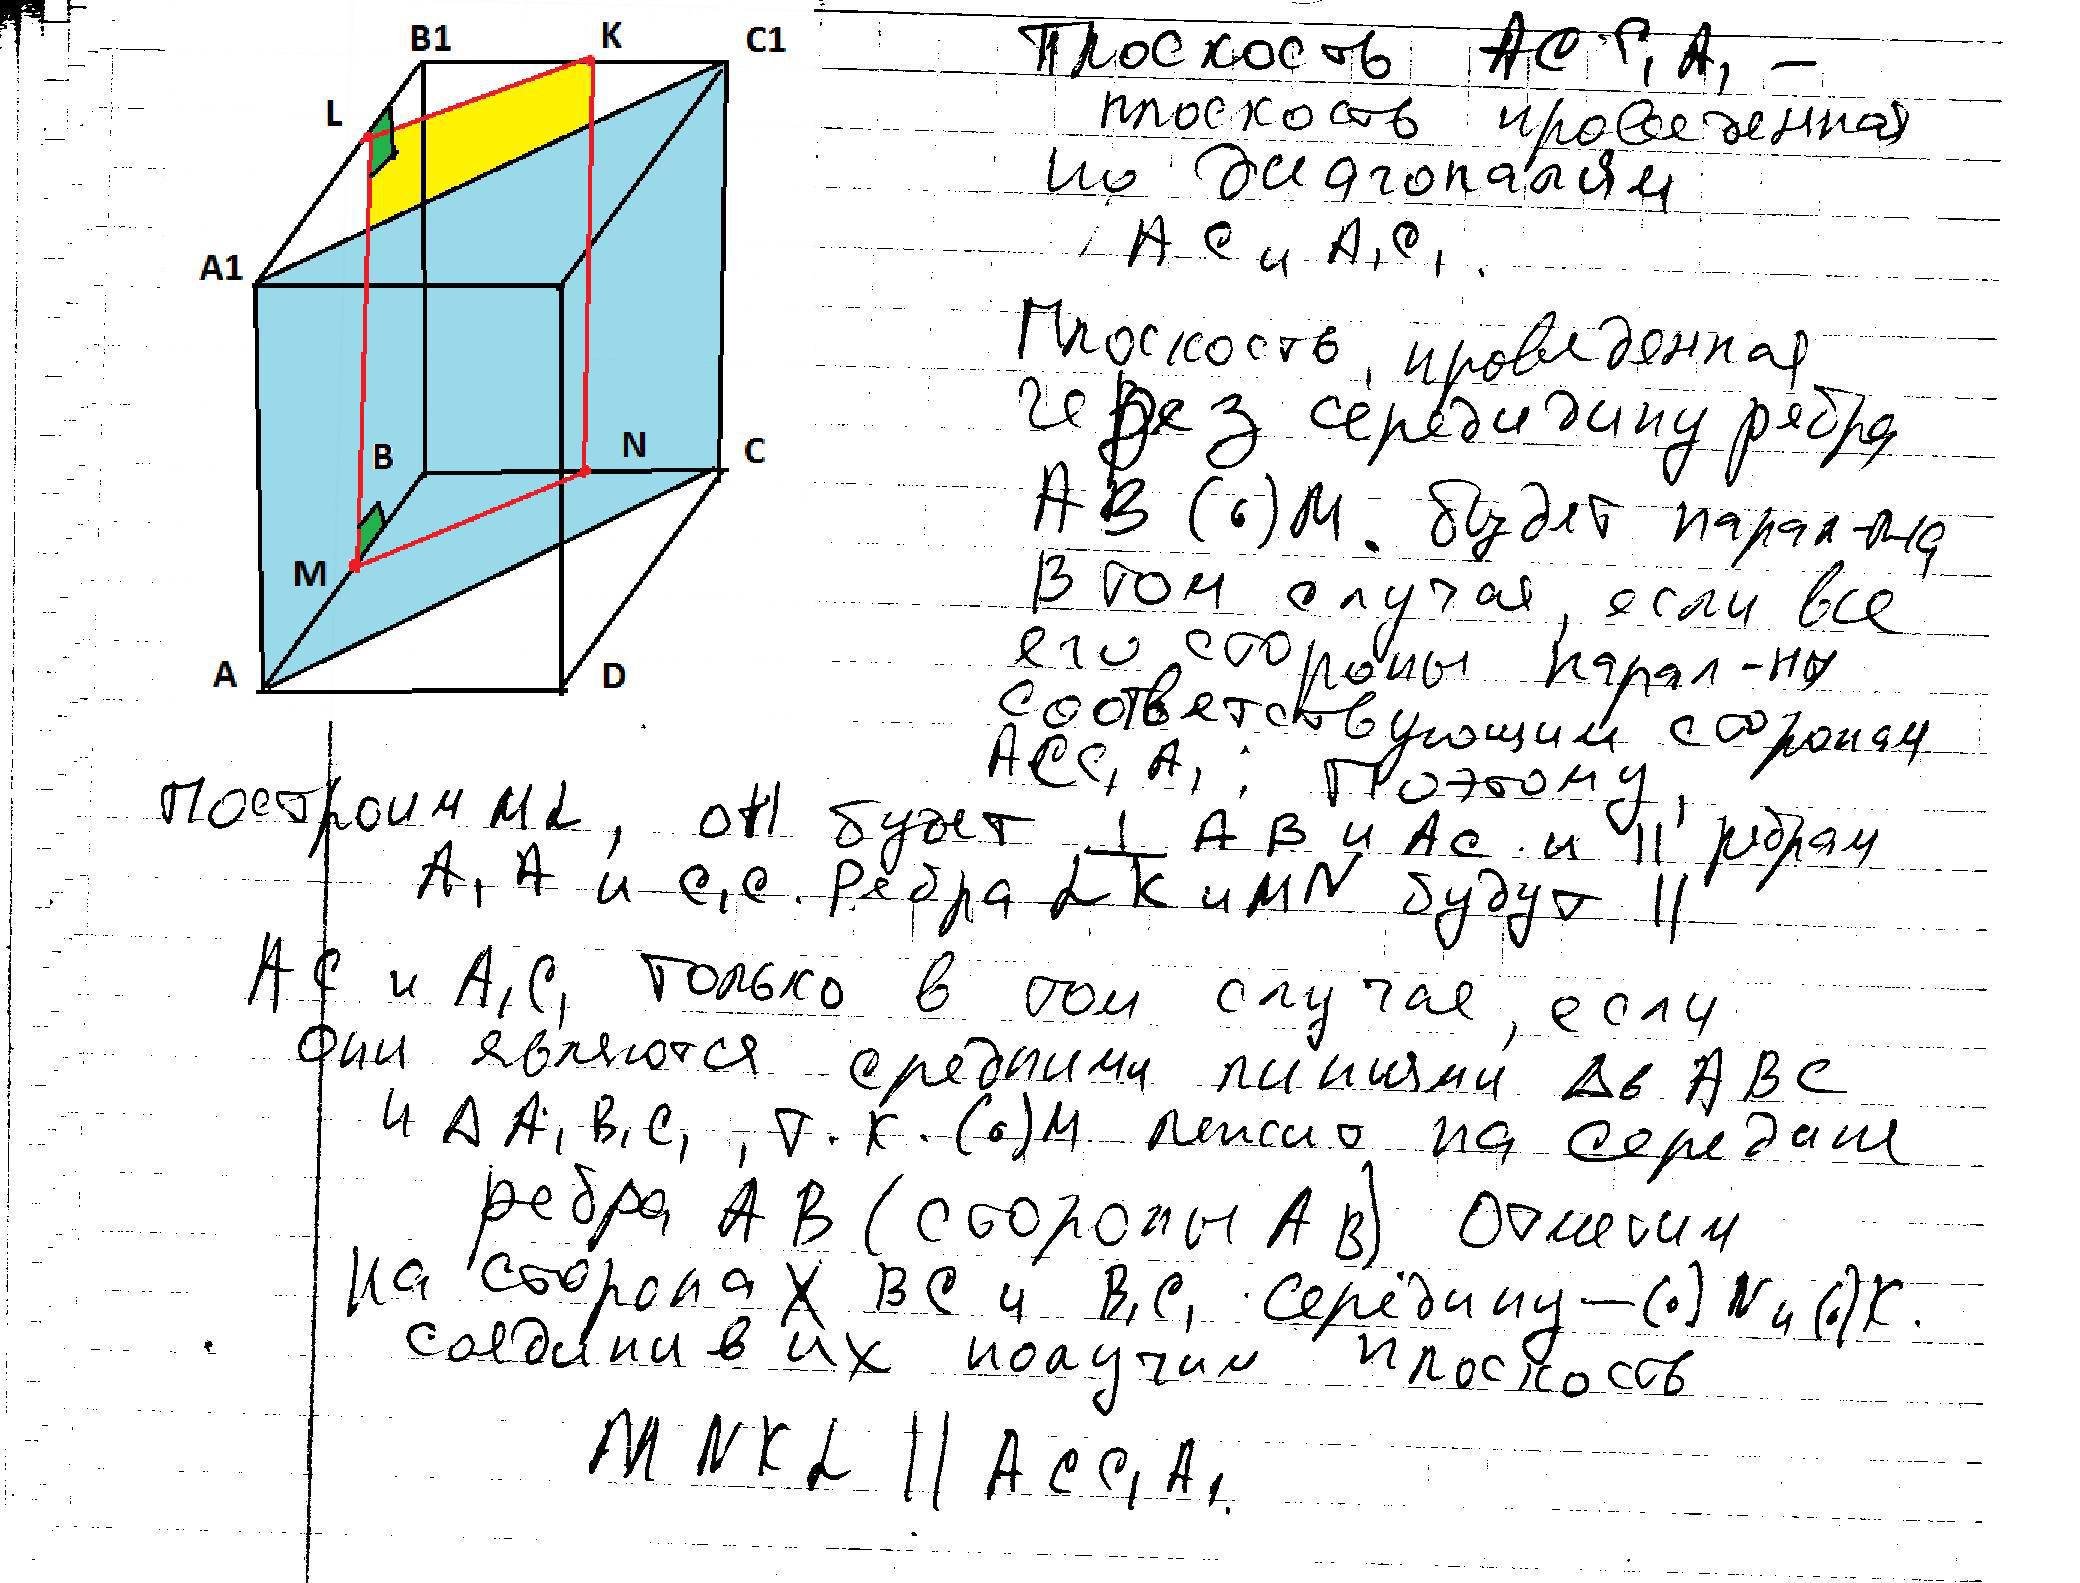 B1 K C1
L
A1
B N C
M
A D
Плоскость ACC₁A₁ –
плоскость проведенная
по диагоналям
AC и A₁C₁.
Плоскость, проведенная
через серединину ребра
AB (•)M. будет парал-на
в том случае, если все
его стороны парал-ны
соответствующим сторонам
ACC₁A₁; Поэтому,
Построим ML, он будет ⊥ AB и AC и || ребрам
A₁A и C₁C. Ребра LK и MN будут ||
AC и A₁C₁ только в том случае, если
они являются средними линиями Δв ABC
и Δ A₁B₁C₁, т.к. (•)M лежит на середине
ребра AB (стороны AB) Отметим
на сторонах BC и B₁C₁ середину – (•)N и (•)K.
соединив их получим плоскость
MNKL || ACC₁A₁.